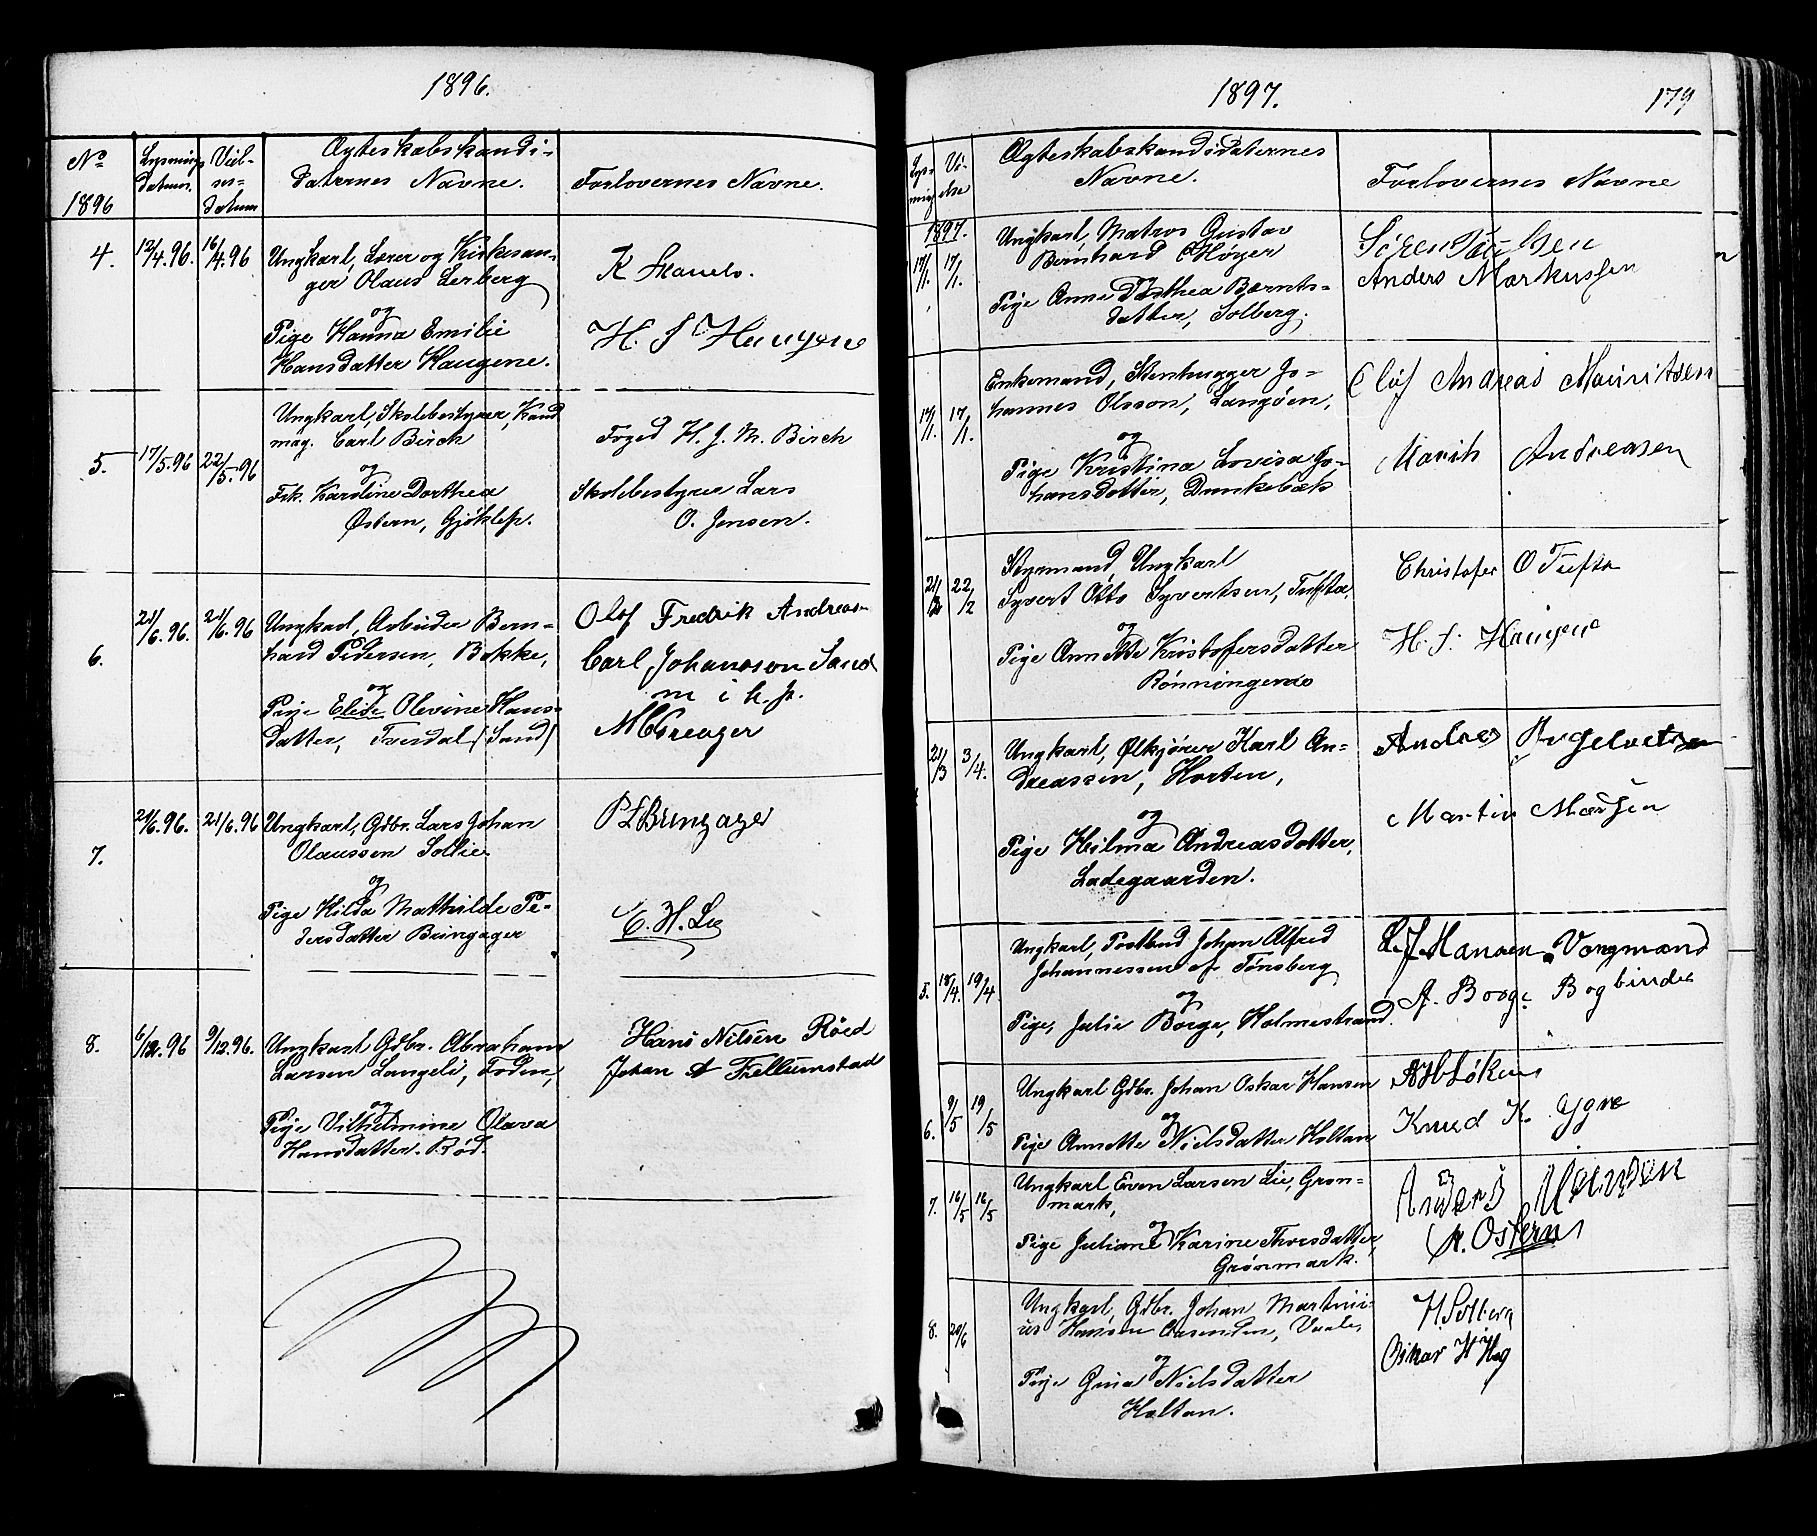 1896.
No
1896
Lysnings
datum.
Viel-
ses-
datum
Ægteskabskandi-
daternes Navne.
Forlovernes Navne.
4.
12/4.96.
16/4.96
Ungkarl, Lærer og Kirkesan-
ger Olaus Lerberg
og
Pige Hanna Emilie
Hansdatter Haugene.
K
H. J Haugene
5.
17/5.96
22/5.96
Ungkarl, Skolebestyrer, Kand
mag. Carl Birch
og
Frk. Karoline Dorthea
Østern, Gjøklep.
Foged H. J. M. Birch
Skolebestyrer Lars
O. Jensen.
6.
21/6.96.
21/6.96
Ungkarl, Arbeider Bern-
hard Pedersen, Bakke,
og
Pige Elise Olevine Hans-
datter, Tverdal (Sand)
Olof Fredrik Andreas-
Carl Johansson Sand
m. i h. p.
7.
21/6.96.
21/6.96
Ungkarl, Gdbr. Lars Johan
Olaussen Sollie
og
Pige Hilda Mathilde Pe-
dersdatter Bringager
P L Bringager
E. H. Lie
8.
6/12.96
9/12.96.
Ungkarl Gdbr. Abraham
Larsen Langeli, Foden,
og
Pige Vilhelmine Olava
Hansdatter. Rød.
Hans Nilsen Röed
Johan A Frellumstad
1897.
179
Lys-
ning
Vi-
else
Ægteskabskandidaternes
Navne.
Forlovernes Navne
1897.
17/1.
17/1.
Ungkarl, Matros Gustav
Bernhard Høyer
Pige Anne Dosthea Bærnts-
datter, Solberg.
Sören
Anders Markussen
17/1.
17/1.
Enkemand, Stenhugger Jo-
hannes Olsson, Langøen,
og
Pige Kristina Lovisa Jo-
hansdotter, Dunkebæk
Olof Andreas Mauritsen
Marith Andreasen
21/2
22/2
Styrmand, Ungkarl
Syvert Otto Syvertsen, Tufte,
og
Pige Annette Kristofersdatter
Rønningene
Christofer O Tufte
H. J. Haugene
21/3
3/4.
Ungkarl, Ølkjører Karl An-
dreassen, Horten,
og
Pige Hilma Andreasdatter,
Ladegaarden.
Andreas
Martin
5.
18/4.
19/4
Ungkarl, Postbud Johan Alfred
Johannessen af Tønsberg
og
Pige, Julie Borge, Holmestrand.
L. J. Hansen. Vongmand
A. Borge Bogbinder
6.
9/5
19/5
Ungkarl Gdbr. Johan Oskar Hansen
og
Pige Annette Nielsdatter Holtan
Knud K. Ygre
7.
16/5
16/5
Ungkarl Even Larsen Lie, Grøn-
mark,
og
Pige Juliane Karine Thorsdatter,
Grønmark.
Anders
A. Ostern
8.
20/6
Ungkarl, Gdbr. Johan Martini-
us Hansen Aasenden, Vaale,
og
Pige Gina Nielsdatter
Holtan.
H Solberg
Oskar H